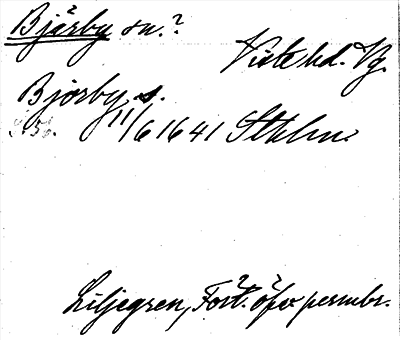 Bjärby sn.?
Viste hd. Vg.
Björby s.
11/6 1641 Sthlm.
Liljegren, Fort. öfv permbr.